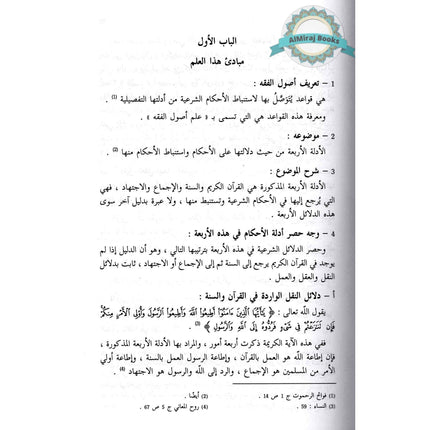 AlMiraj Books
الباب الأول
مبادئ هذا العلم
1 – تعريف أصول الفقه :
هي قواعد يُتَوَصَّلُ بها لاستنباط الأحكام الشرعية من أدلتها التفصيلية (1) .
ومعرفة هذه القواعد هي التي تسمى بـ « علم أصول الفقه » .
2 – موضوعه :
الأدلة الأربعة من حيث دلالتها على الأحكام واستنباط الأحكام منها (2) .
3 – شرح الموضوع :
الأدلة الأربعة المذكورة هي القرآن الكريم والسنة والإجماع والاجتهاد ، فهي
التي يُرجع إليها في الأحكام الشرعية وتستنبط منها ، ولا عبرة بدليل آخر سوى
هذه الدلائل الأربعة .
4 – وجه حصر أدلة الأحكام في هذه الأربعة :
وحصر الدلائل الشرعية في هذه الأربعة بترتيبها التالي ، وهو أن الدليل إذا لم
يوجد في القرآن الكريم يرجع إلى السنة ثم إلى الإجماع أو الاجتهاد ، ثابت بدلائل
النقل والعقل والعمل .
أ – دلائل النقل الواردة في القرآن والسنة :
يقول الله تعالى : ﴿ يَٰٓأَيُّهَا ٱلَّذِينَ ءَامَنُوٓا۟ أَطِيعُوا۟ ٱللَّهَ وَأَطِيعُوا۟ ٱلرَّسُولَ وَأُو۟لِى ٱلْأَمْرِ مِنكُمْ
فَإِن تَنَٰزَعْتُمْ فِى شَىْءٍ فَرُدُّوهُ إِلَى ٱللَّهِ وَٱلرَّسُولِ ﴾ (3) .
ففي هذه الآية الكريمة ذكرت أربعة أمور ، والمراد بها الأدلة الأربعة المذكورة ،
فإن إطاعة الله هو العمل بالقرآن ، وإطاعة الرسول العمل بالسنة ، وإطاعة أولي
الأمر من المسلمين هو الإجماع ، والرد إلى الله والرسول هو الاجتهاد (4)
(1) فواتح الرحموت ج 1 ص 14 . (2) أيضًا .
(3) النساء : 59 . (4) روح المعاني ج 5 ص 67 .